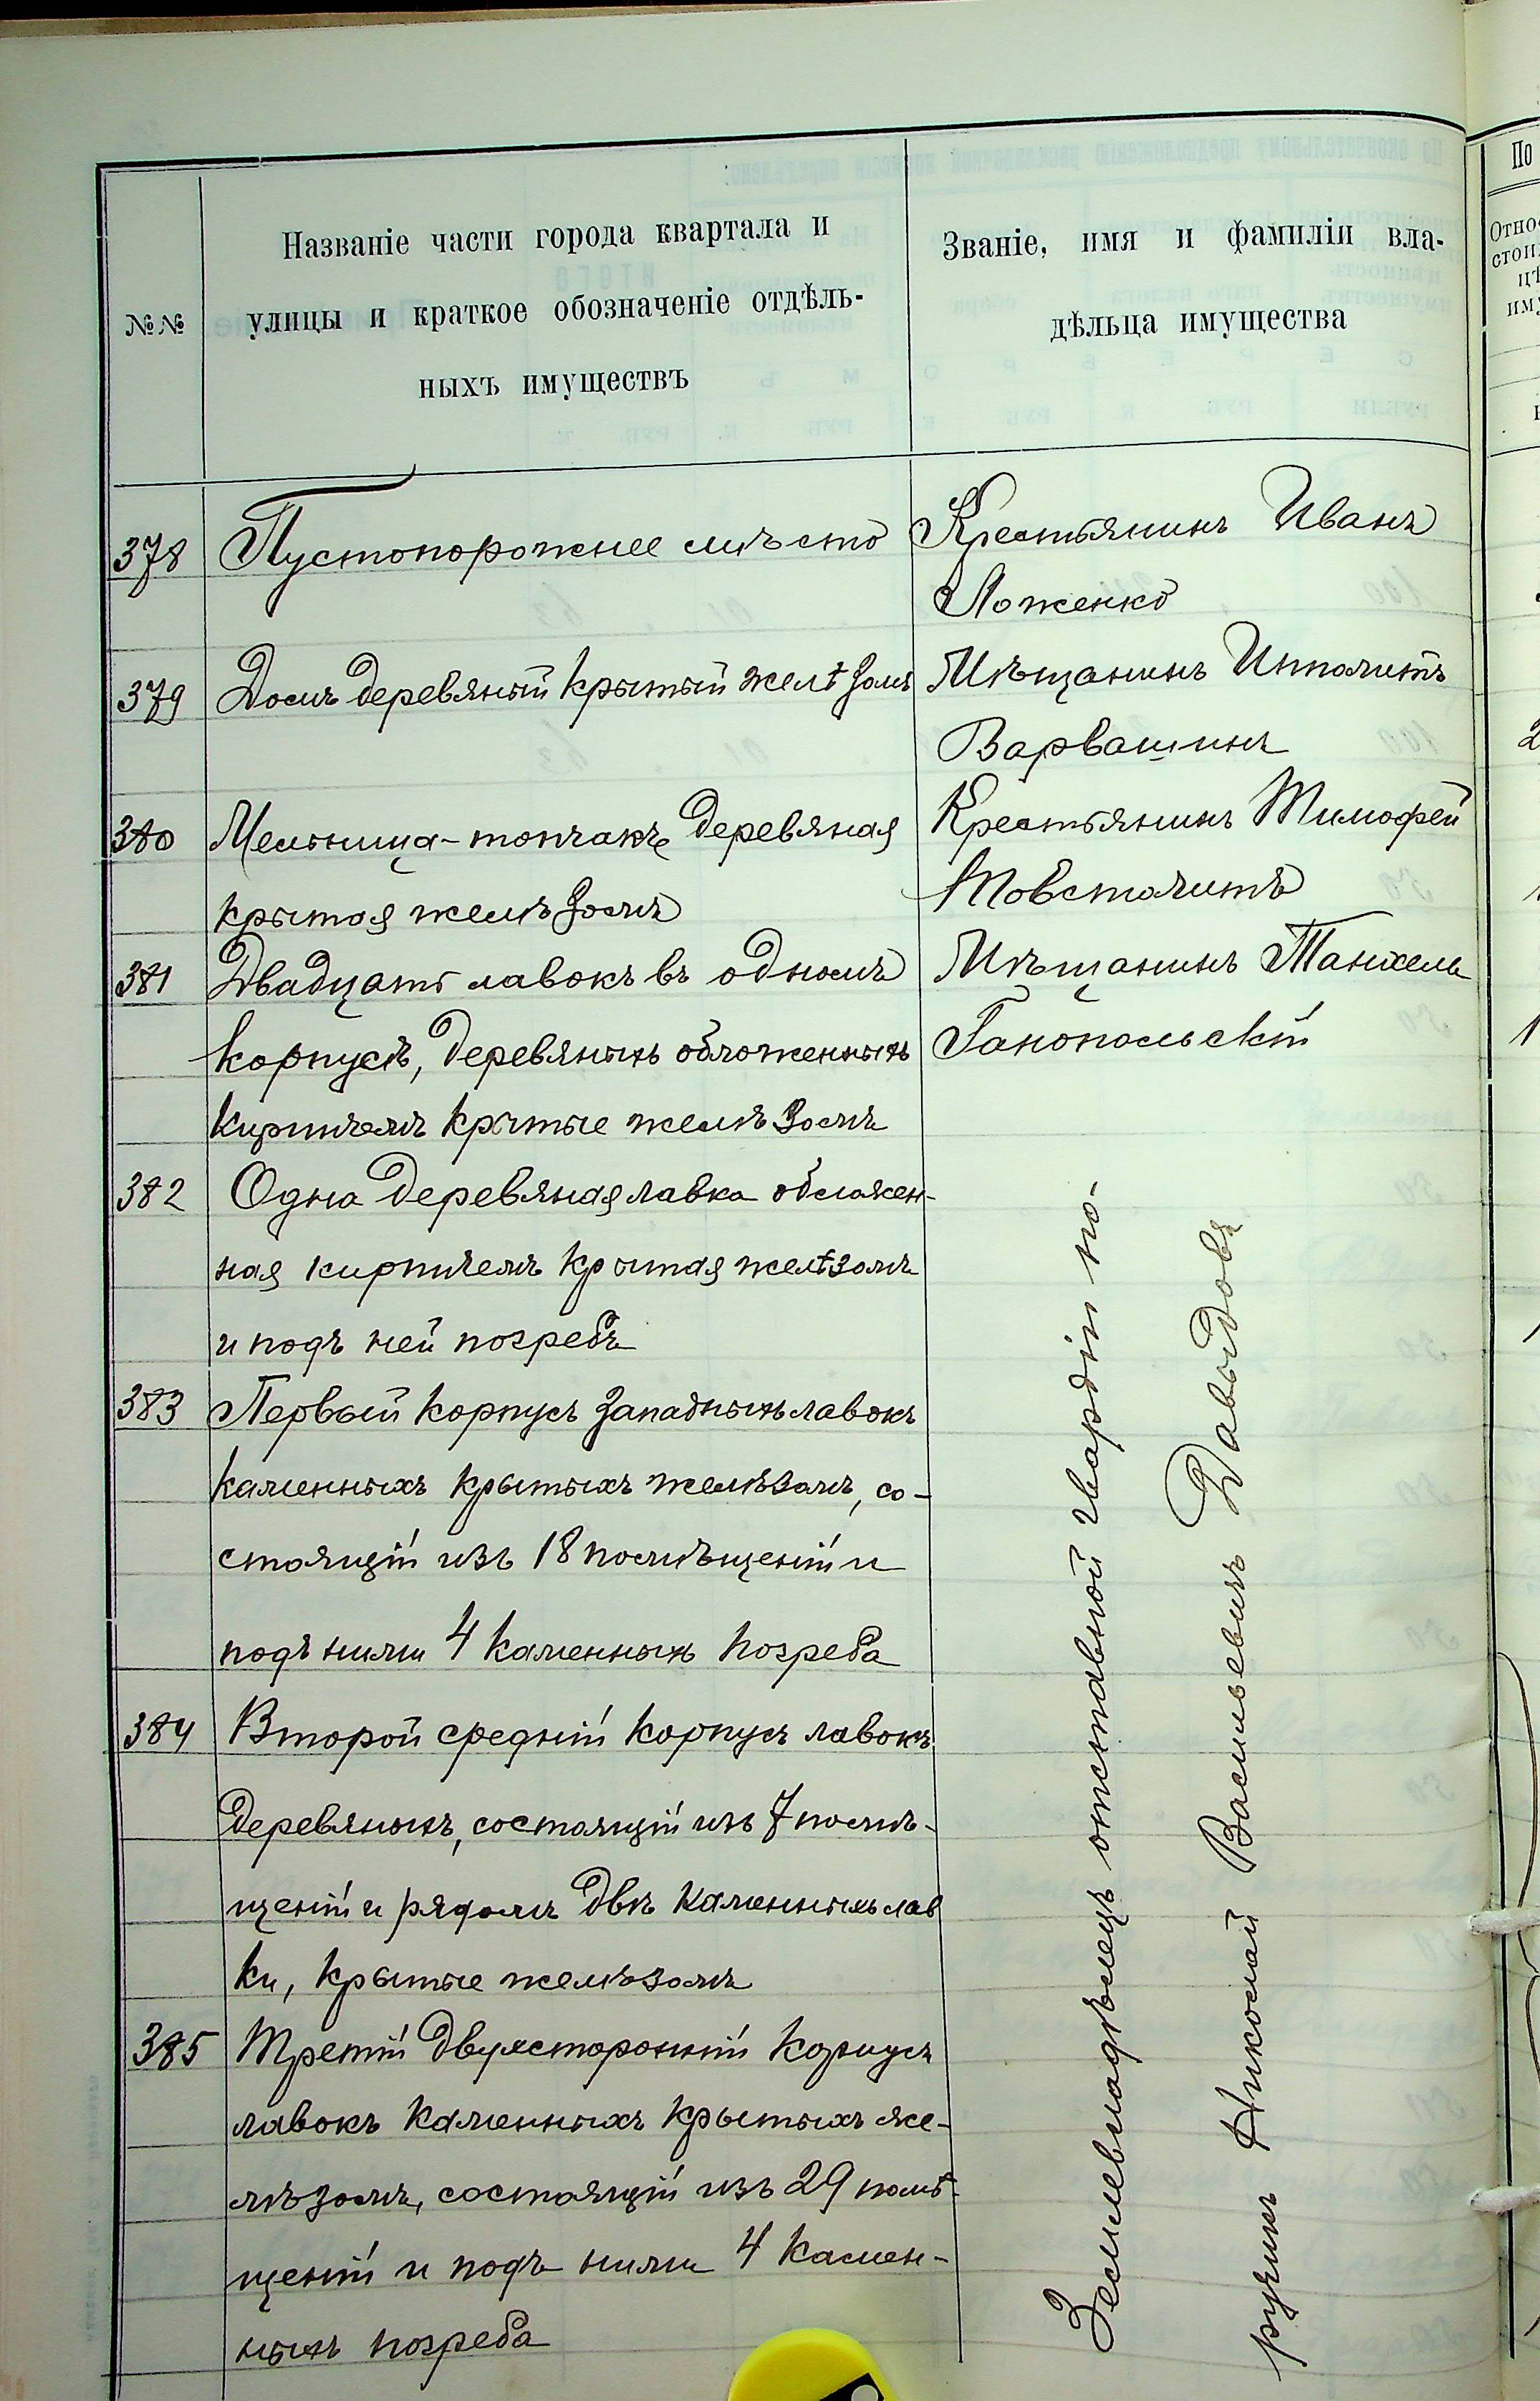 №№
Названіе части города квартала и
улицы и краткое обозначеніе отдѣль-
ныхъ имуществъ
Званіе, имя и фамиліи вла-
дѣльца имущества
378 Пустопорожнее мѣсто
Крестьянинъ Иванъ
Ложенко
379 Домъ деревяный крытый желѣзомъ
Мѣщанинъ Ипполитъ
Варвашинъ
380 Мельница-топчакъ деревяная
крытая желѣзомъ
Крестьянинъ Тимофей
Товстолитъ
381 Двадцать лавокъ въ одномъ
корпусѣ, деревяныхъ обложенныхъ
кирпичемъ крытые желѣзомъ
Мѣщанинъ Танхель
Ганопольскій
382 Одна деревяная лавка обложен-
ная кирпичемъ крытая желѣзомъ
и подъ ней погребъ
383 Первый корпусъ западныхъ лавокъ
каменныхъ крытыхъ желѣзомъ, со-
стоящій изъ 18 помѣщеній и
подъ ними 4 каменныхъ погреба
384 Второй средній корпусъ лавокъ
деревяныхъ, состоящій изъ 7 помѣ-
щеній и рядомъ двѣ каменныхъ лав
ки, крытые желѣзомъ
385 Третій двухсторонній корпусъ
лавокъ каменныхъ крытыхъ же-
лѣзомъ, состоящій изъ 29 помѣ-
щеній и подъ ними 4 камен-
ныхъ погреба
Землевладѣлецъ отставной гвардіи по-
ручикъ Николай Васильевичъ Давыдовъ
По